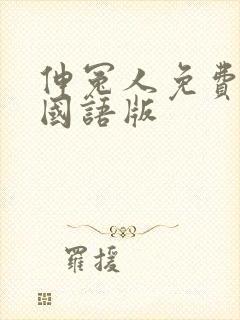 伸冤人免費
國語版
羅援